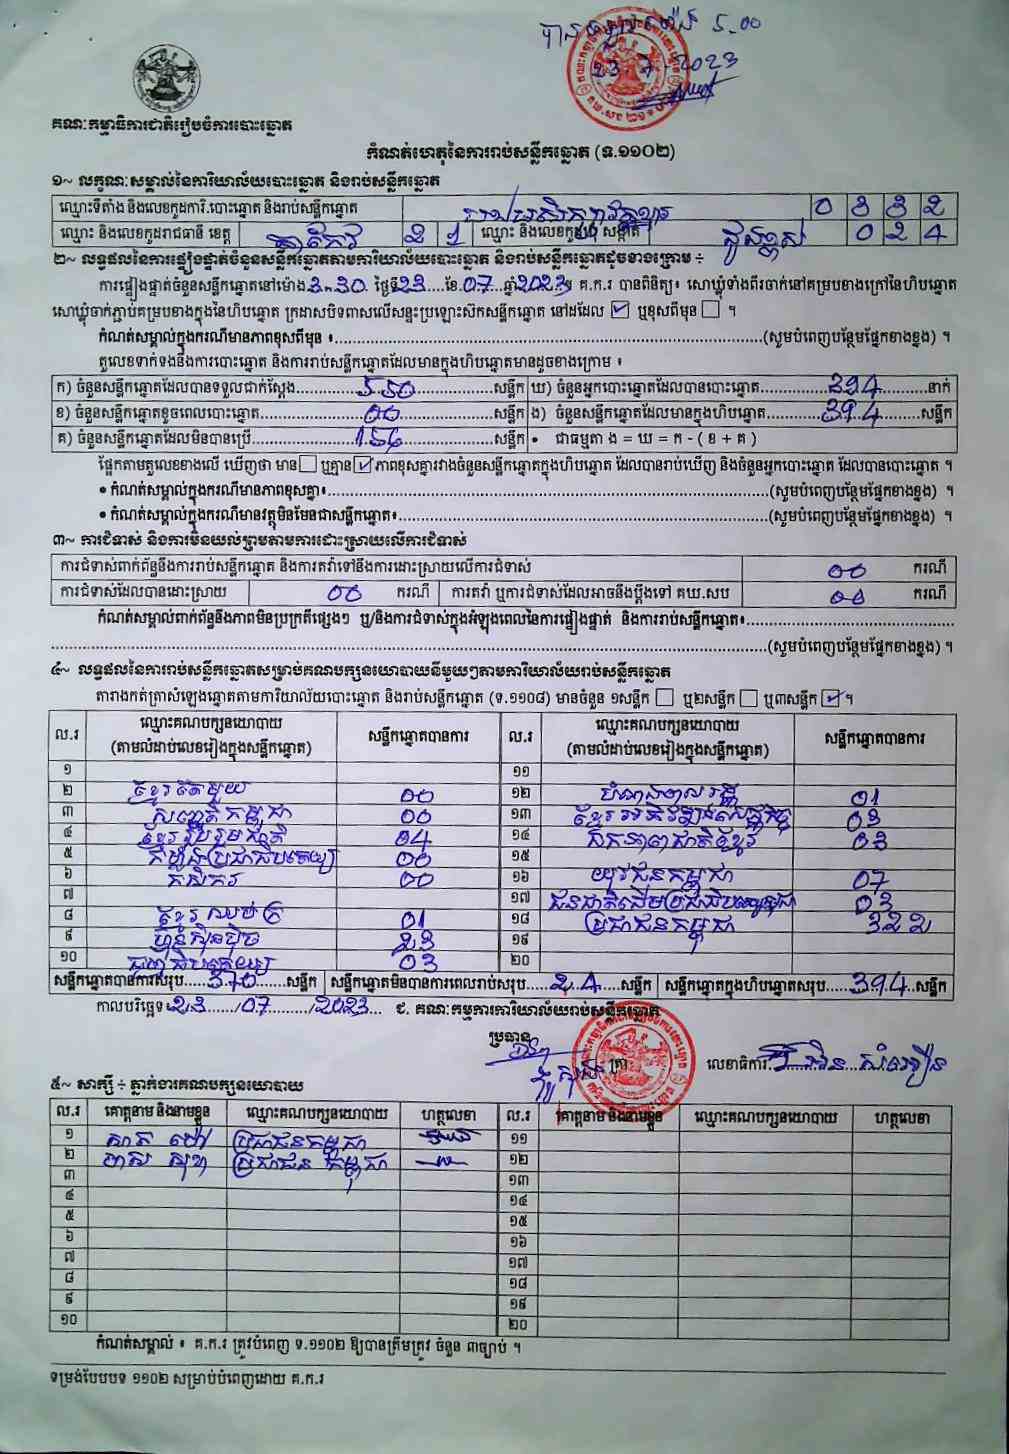 5.00
23 7 - 2023
គណៈកម្មាធិការជាតិរៀបចំការបោះឆ្នោត
កំណត់ហេតុនៃការរាប់សន្លឹកឆ្នោត (ទ.១១០២)
១~ លក្ខណៈសម្គាល់នៃការិយាល័យបោះឆ្នោត និងរាប់សន្លឹកឆ្នោត
ឈ្មោះទីតាំង និងលេខកូដការិ.បោះឆ្នោត និងរាប់សន្លឹកឆ្នោត
ឈ្មោះ និងលេខកូដរាជធានី ខេត្ត តាកែវ 2 1 ឈ្មោះ និងលេខកូដឃុំ សង្កាត់ 0 2 4
២~ លទ្ធផលនៃការផ្ទៀងផ្ទាត់ចំនួនសន្លឹកឆ្នោតតាមការិយាល័យបោះឆ្នោត និងរាប់សន្លឹកឆ្នោតដូចខាងក្រោម ÷
ការផ្ទៀងផ្ទាត់ចំនួនសន្លឹកឆ្នោតនៅម៉ោង 3:30 ថ្ងៃទី 23 ខែ 07 ឆ្នាំ 2023 គ.ក.រ បានពិនិត្យ៖ សោឃ្លុំទាំងពីរចាក់នៅគម្របខាងក្រៅនៃហិបឆ្នោត
សោឃ្លុំចាក់ភ្ជាប់គម្របខាងក្នុងនៃហិបឆ្នោត ក្រដាសបិទពាសលើសន្ទះប្រឡោះស៊កសន្លឹកឆ្នោត នៅដដែល ☑ ឬខុសពីមុន ☐ ។
កំណត់សម្គាល់ក្នុងករណីមានភាពខុសពីមុន ៖ (សូមបំពេញបន្ថែមផ្នែកខាងខ្នង) ។
តួលេខទាក់ទងនឹងការបោះឆ្នោត និងការរាប់សន្លឹកឆ្នោតដែលមានក្នុងហិបឆ្នោតមានដូចខាងក្រោម ៖
ក) ចំនួនសន្លឹកឆ្នោតដែលបានទទួលជាក់ស្តែង 550 សន្លឹក ឃ) ចំនួនអ្នកបោះឆ្នោតដែលបានបោះឆ្នោត 394 នាក់
ខ) ចំនួនសន្លឹកឆ្នោតខូចពេលបោះឆ្នោត 00 សន្លឹក ង) ចំនួនសន្លឹកឆ្នោតដែលមានក្នុងហិបឆ្នោត 394 សន្លឹក
គ) ចំនួនសន្លឹកឆ្នោតដែលមិនបានប្រើ 156 សន្លឹក • ជាធម្មតា ង = ឃ = ក - ( ខ + គ )
ផ្អែកតាមតួលេខខាងលើ ឃើញថា មាន ☐ ឬគ្មាន ☑ ភាពខុសគ្នារវាងចំនួនសន្លឹកឆ្នោតក្នុងហិបឆ្នោត ដែលបានរាប់ឃើញ និងចំនួនអ្នកបោះឆ្នោត ដែលបានបោះឆ្នោត ។
• កំណត់សម្គាល់ក្នុងករណីមានភាពខុសគ្នា៖ (សូមបំពេញបន្ថែមផ្នែកខាងខ្នង) ។
• កំណត់សម្គាល់ក្នុងករណីមានវត្ថុមិនមែនជាសន្លឹកឆ្នោត៖ (សូមបំពេញបន្ថែមផ្នែកខាងខ្នង) ។
៣~ ការជំទាស់ និងការមិនយល់ព្រមតាមការដោះស្រាយលើការជំទាស់
ការជំទាស់ពាក់ព័ន្ធនឹងការរាប់សន្លឹកឆ្នោត និងការតវ៉ាទៅនឹងការដោះស្រាយលើការជំទាស់ 00 ករណី
ការជំទាស់ដែលបានដោះស្រាយ 00 ករណី ការតវ៉ា ឬការជំទាស់ដែលអាចនឹងប្តឹងទៅ គឃ.សប 00 ករណី
កំណត់សម្គាល់ពាក់ព័ន្ធនឹងភាពមិនប្រក្រតីផ្សេងៗ ឬ/និងការជំទាស់ក្នុងអំឡុងពេលនៃការផ្ទៀងផ្ទាត់ និងការរាប់សន្លឹកឆ្នោត៖
(សូមបំពេញបន្ថែមផ្នែកខាងខ្នង) ។
៤~ លទ្ធផលនៃការរាប់សន្លឹកឆ្នោតសម្រាប់គណបក្សនយោបាយនីមួយៗតាមការិយាល័យរាប់សន្លឹកឆ្នោត
តារាងកត់ត្រាសំឡេងឆ្នោតតាមការិយាល័យបោះឆ្នោត និងរាប់សន្លឹកឆ្នោត (ទ.១១០៨) មានចំនួន ១សន្លឹក ☐ ឬ២សន្លឹក ☐ ឬ៣សន្លឹក ☑ ។
ល.រ ឈ្មោះគណបក្សនយោបាយ (តាមលំដាប់លេខរៀងក្នុងសន្លឹកឆ្នោត) សន្លឹកឆ្នោតបានការ ល.រ ឈ្មោះគណបក្សនយោបាយ (តាមលំដាប់លេខរៀងក្នុងសន្លឹកឆ្នោត) សន្លឹកឆ្នោតបានការ
១ ១១
២ ខ្មែរតែមួយ 00 ១២ 01
៣ សញ្ជាតិកម្ពុជា 00 ១៣ ខ្មែរអភិវឌ្ឍន៍សេដ្ឋកិច្ច 03
៤ ខ្មែររួបរួមជាតិ 04 ១៤ ឯកភាពជាតិខ្មែរ 03
៥ កម្លាំងប្រជាធិបតេយ្យ 00 ១៥
៦ កសិករ 00 ១៦ យុវជនកម្ពុជា 07
៧ ១៧ ជនជាតិដើមប្រជាធិបតេយ្យកម្ពុជា 03
៨ ខ្មែរឈប់ក្រ 01 ១៨ ប្រជាជនកម្ពុជា 322
៩ ហ្វ៊ុនស៊ិនប៉ិច 23 ១៩
១០ ប្រជាធិបតេយ្យ 03 ២០
សន្លឹកឆ្នោតបានការសរុប 370 សន្លឹក សន្លឹកឆ្នោតមិនបានការពេលរាប់សរុប 24 សន្លឹក សន្លឹកឆ្នោតក្នុងហិបឆ្នោតសរុប 394 សន្លឹក
កាលបរិច្ឆេទ 23 /07 /2023 ជ. គណៈកម្មការការិយាល័យរាប់សន្លឹកឆ្នោត
ប្រធាន
ត្រា លេខាធិការ
៥~ សាក្សី ÷ ភ្នាក់ងារគណបក្សនយោបាយ
ល.រ គោត្តនាម និងនាមខ្លួន ឈ្មោះគណបក្សនយោបាយ ហត្ថលេខា ល.រ គោត្តនាម និងនាមខ្លួន ឈ្មោះគណបក្សនយោបាយ ហត្ថលេខា
១ ប្រជាជនកម្ពុជា ១១
២ ប្រជាជនកម្ពុជា ១២
៣ ១៣
៤ ១៤
៥ ១៥
៦ ១៦
៧ ១៧
៨ ១៨
៩ ១៩
១០ ២០
កំណត់សម្គាល់ ៖ គ.ក.រ ត្រូវបំពេញ ទ.១១០២ ឱ្យបានត្រឹមត្រូវ ចំនួន ៣ច្បាប់ ។
ទម្រង់បែបបទ ១១០២ សម្រាប់បំពេញដោយ គ.ក.រ